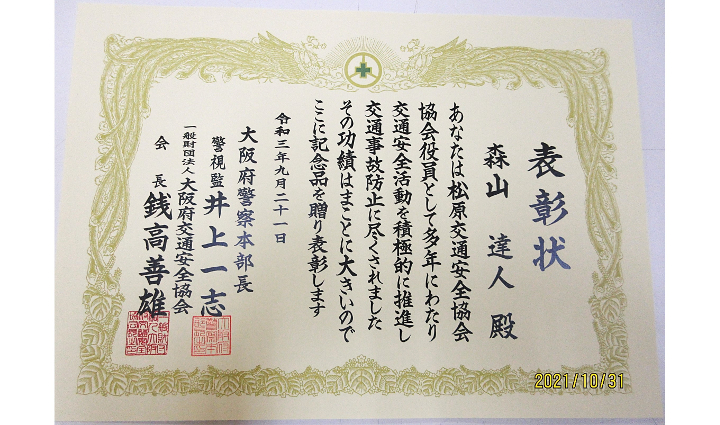 表彰状
森山 達人 殿
あなたは松原交通安全協会
協会役員として多年にわたり
交通安全活動を積極的に推進し
交通事故防止に尽くされました
その功績はまことに大きいので
ここに記念品を贈り表彰します
令和三年九月二十一日
大阪府警察本部長
警視監 井上一志
一般財団法人大阪府交通安全協会
会長 銭高善雄
2021/10/31